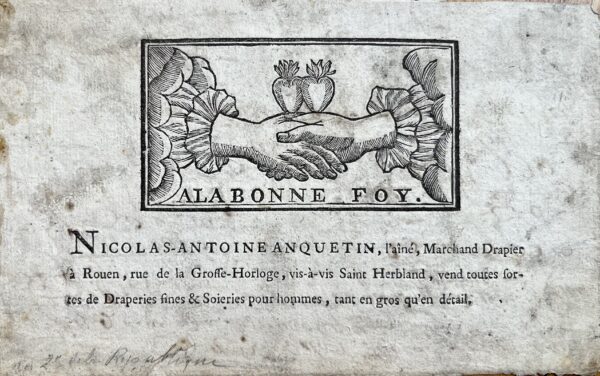 ALABONNE FOY.
NICOLAS-ANTOINE ANQUETIN, l'aîné, Marchand Drapier
à Rouen, rue de la Groſſe-Horloge, vis-à-vis Saint Herbland, vend toutes ſor-
tes de Draperies fines & Soieries pour hommes, tant en gros qu'en détail.
de la République